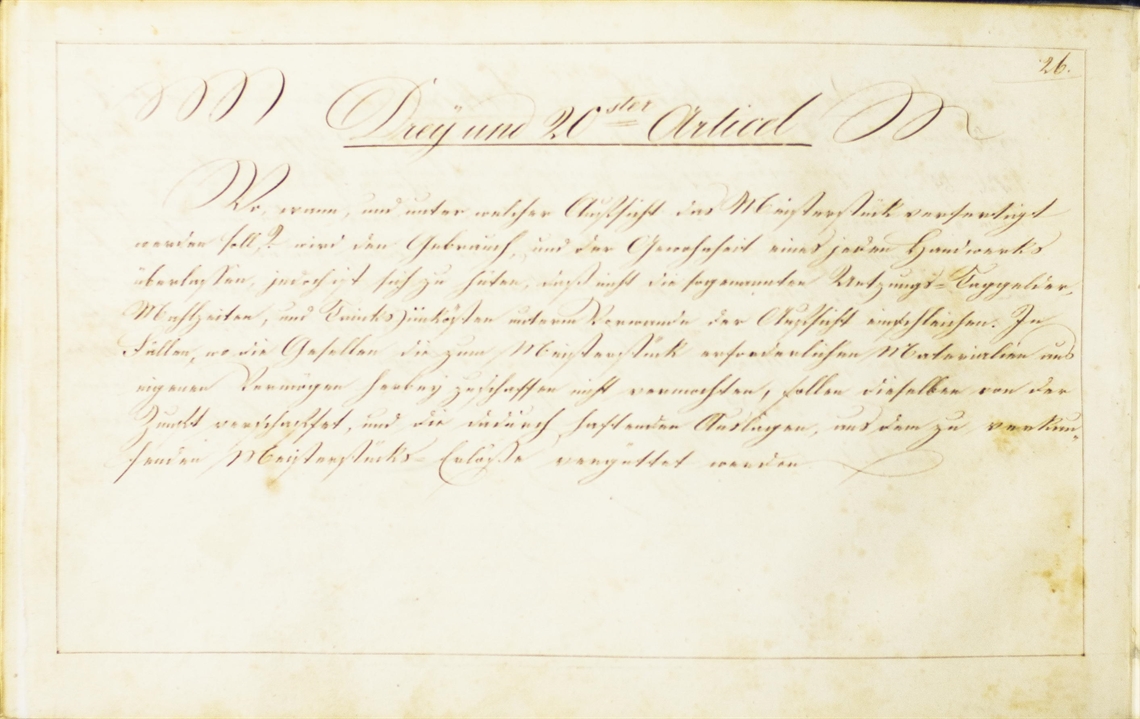 26.
Dreÿ und 20ster Articel
Wo, wann, und unter welcher Aufsicht das Meisterstück verfertigt
werden soll? wird den Gebrauch, und der Gewohnheit eines jeden Handwerks
überlassen, jedoch ist sich zu hüten, daß nicht die sogenannten Taggelder,
Mahlzeiten, und Trinksunkösten unterm Vorwande der Aufsicht einschleichen. In
Fällen, wo die Gesellen die zum Meisterstück erforderlichen Materialien aus
eigenen Vermögen herbey zuschaffen nicht vermochten, sollen dieselben von der
Zunft verschaffet, und die dadurch haftenden Auslagen, aus dem zu verkau„
fenden Meisterstücks-Erlöße vergüttet werden